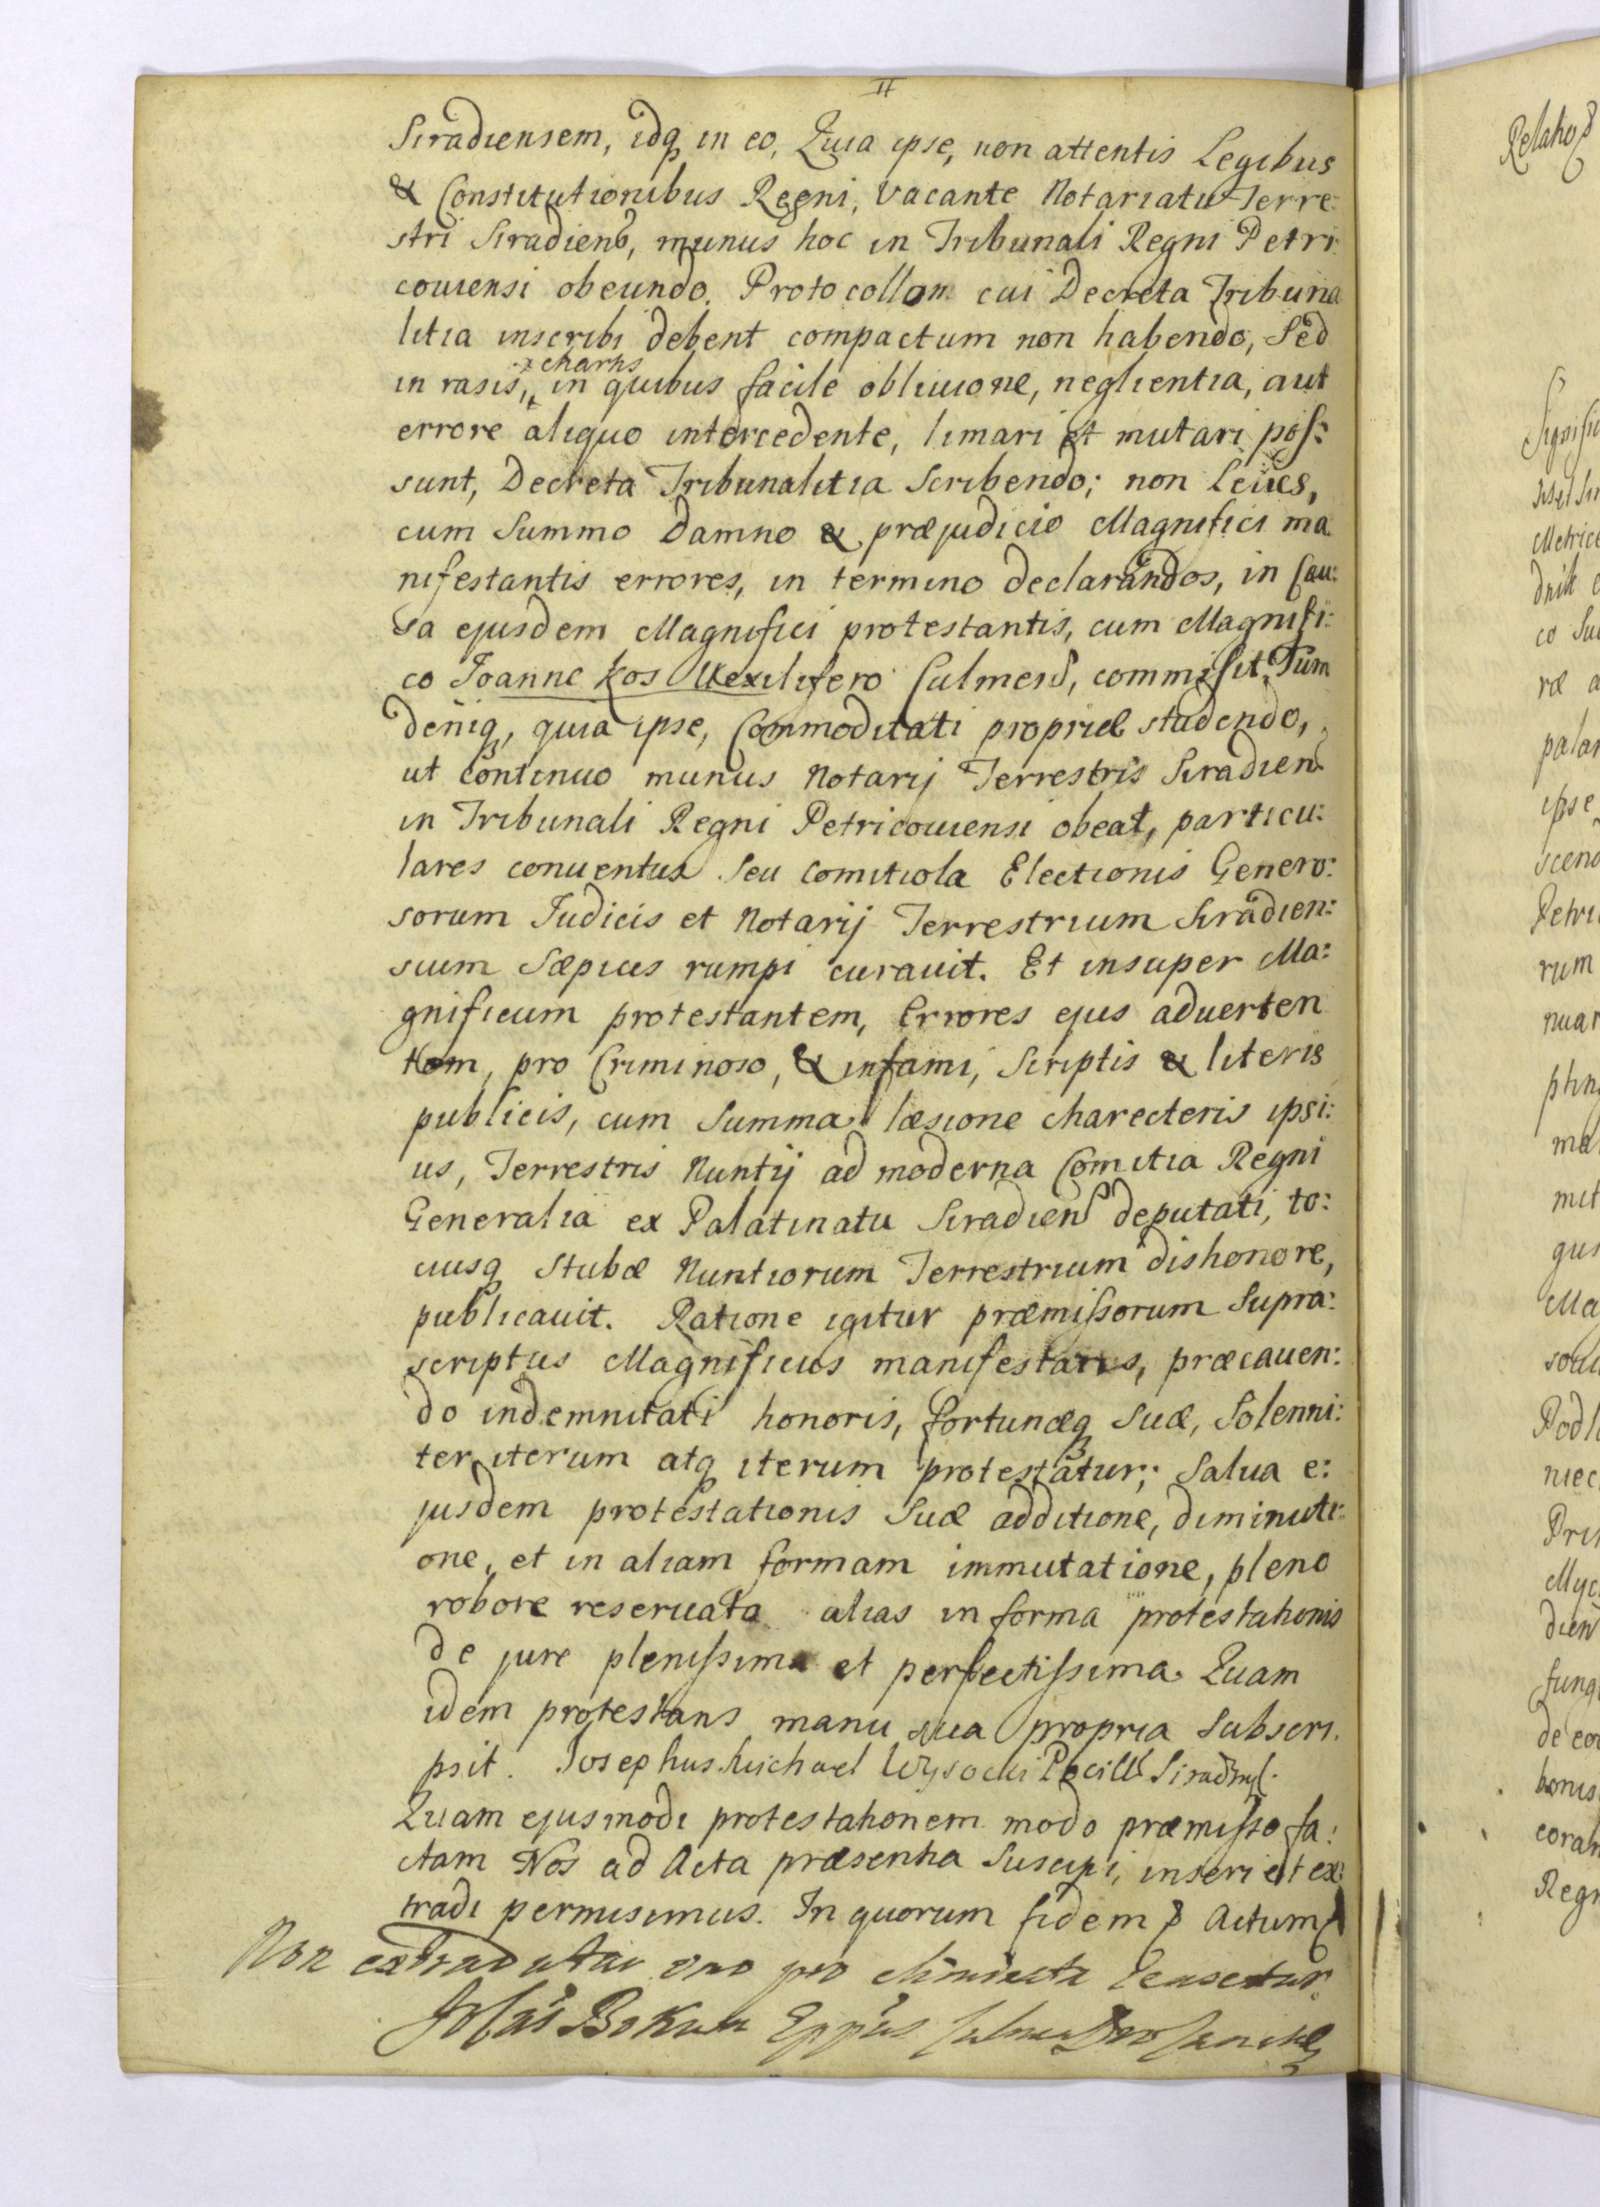 II
Siradiensem, idq in eo, Quia ipse, non attentis Legibus
& Constitutionibus Regni, vacante Notariatu Terre:
stri Siradiens, munus hoc in Tribunali Regni Petri
couiensi obeundo. Protocollom cui Decreta Tribuna
litia inscribi debent compactum non habendo, Sed
chartis
in rasis, in quibus facile obliuione, neglientia, aut
errore aliquo intercedente, limari et mutari pos:
sunt, Decreta Tribunalitia Scribendo; non Leues,
cum Summo Damno & præjudicio Magnifici ma
nifestantis errores, in termino declarandos, in Cau:
sa ejusdem Magnifici protestantis, cum Magnifi:
co Joanne Kos Uexilifero Culmens, commisit. Tum
deniq, quia ipse, Commoditati propriæ studendo,
ut continuo munus Notarij Terrestris Siradiens
in Tribunali Regni Petricouiensi obeat, particu:
lares conuentus Seu Comitiola Electionis Genero:
sorum Judicis et Notarij Terrestrium Siradien:
sium Sæpius rumpi curauit. Et insuper Ma:
gnificum protestantem, Errores ejus aduerten
tem, pro Criminoso, & infami, Scriptis & literis
publicis, cum Summa læsione charecteris ipsi:
us, Terrestris Nuntij ad moderna Comitia Regni
Generalia ex Palatinatu Siradiens deputati, to:
iusq Stubæ Nuntiorum Terrestrium dishonore,
publicauit. Ratione igitur præmissorum Supra:
scriptus Magnificus manifestans, præcauen:
do indemnitati honoris, fortunæq Suæ, Solenni:
ter iterum atq iterum protestatur; Salua e:
jusdem protestationis Suæ additione, diminuti:
one, et in aliam formam immutatione, pleno
robore reseruata alias in forma protestationis
de jure plenissima et perfectissima. Quam
idem protestans manu sua propria Subscri.
psit. Josephus Michael Wysocki Pocill Sirad
Quam ejusmodi protestationem modo præmisso fa:
ctam Nos ad Acta præsentia Suscipi, inseri et ex:
tradi permisimus. In quorum fidem Actum
Non extradatur
Bokum Eppus
Relatio